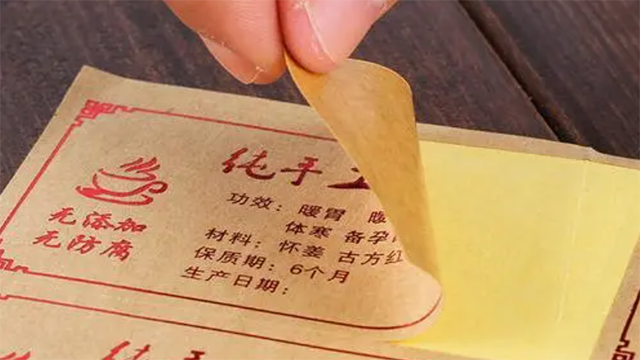 纯手工
无添加
无防腐
功效：暖胃 暖
体寒 备孕
材料：怀姜 古方红
保质期：6个月
生产日期：